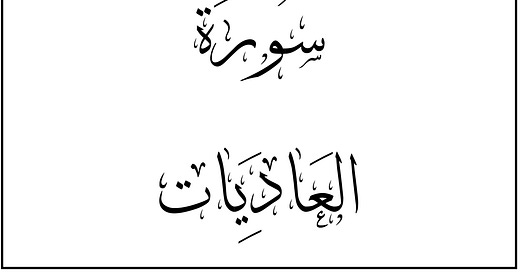 سورة
العاديات